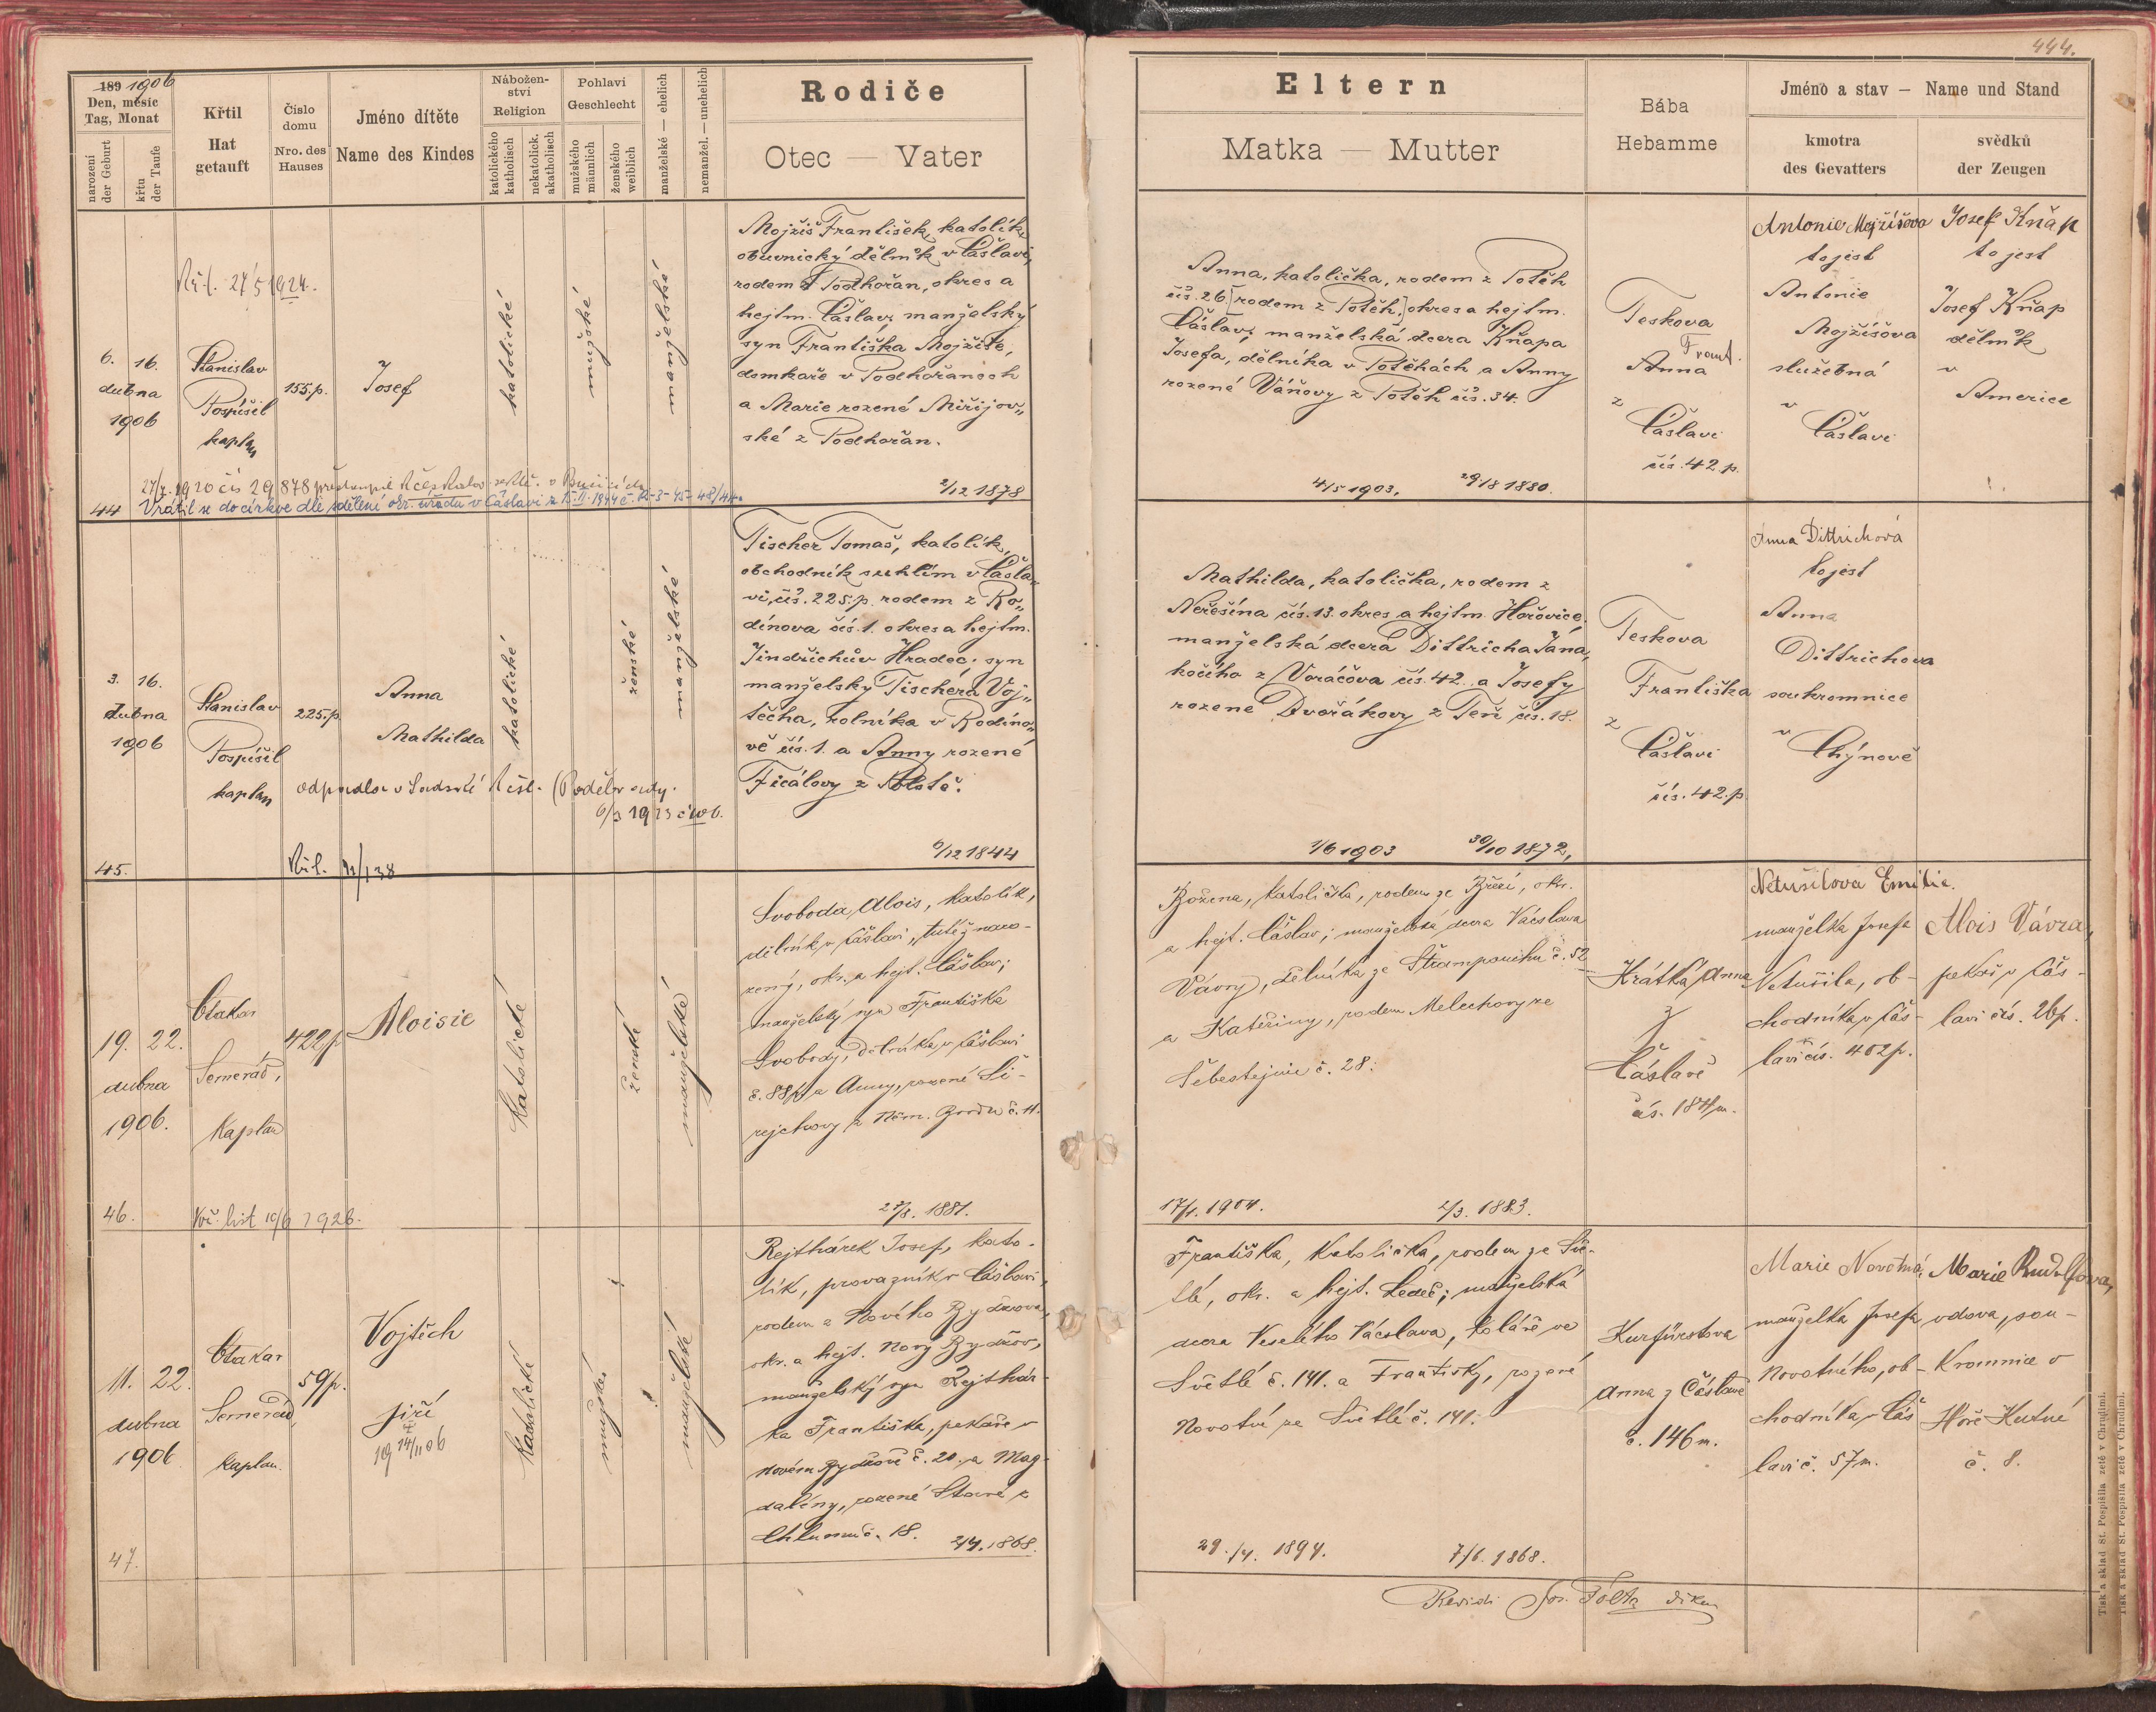 444.
189 1906
Den, měsíc
Tag, Monat
narození
der Geburt
křtu
der Taufe
Křtil
Hat
getauft
Číslo
domu
Nro. des
Hauses
Jméno dítěte
Name des Kindes
Nábožen-
ství
Religion
katolického
katholisch
nekatolick.
akatholisch
Pohlaví
Geschlecht
mužského
männlich
ženského
weiblich
manželské — ehelich
nemanžel. — unehelich
Rodiče
Otec — Vater
Eltern
Matka — Mutter
Bába
Hebamme
Jméno a stav — Name und Stand
kmotra
des Gevatters
svědků
der Zeugen
27/5 1924.
6. 16.
dubna
1906
Stanislav
Pospíšil
kaplan
155.p.
Josef
katolické
mužské
manželské
Mojžíš František, katolík,
obuvnický dělník v Čáslavi,
rodem z Podhořan, okres a
hejtm. Čáslav; manželský
syn Františka Mojžíše,
domkaře v Podhořanech
a Marie rozené Miřijov„
ské z Podhořan.
2/12 1878
Anna, katolička, rodem z Potěh
čís. 26 [rodem z Potěh,] okres a hejtm.
Čáslav; manželská dcera Kňapa
Josefa, dělníka v Potěhách a Anny
rozené Váňovy z Potěh čís. 34.
4/5 1903. 29/8 1880.
Teskova
Frant.
Anna
z
Čáslavi
čís. 42 p.
Antonie Mojžíšova
tojest
Antonie
Mojžíšova
služebná
v
Čáslavi
Josef Knăp
tojest
Josef Kňap
dělník
v
Americe
44
Vrátil se do církve dle sdělení okr. úřadu v Čáslavi
3. 16.
dubna
1906
Stanislav
Pospíšil
kaplan
225.p.
Anna
Mathilda
katolické
ženské
manželské
odpadla v Sadské
45.
Tischer Tomaš, katolík,
obchodník s uhlím v Čásla„
vi, čís. 225.p. rodem z Ro„
dínova čís. 1. okres a hejtm.
Jindřichův Hradec; syn
manželský Tischera Voj„
těcha, rolníka v Rodíno„
vě čís. 1. a Anny rozené
Ficálovy z
6/12 1844
Mathilda, katolička, rodem z
Neřešína čís. 13. okres a hejtm. Hořovice,
manželská dcera Dittricha Jána,
kočího z Voráčova čís. 42. a Josefy
rozené Dvořákovy z Terč čís. 18.
1/6 1903 30/10 1872,
Teskova
Františka
z
Čáslavi
čís. 42. p
Anna Dittrichová
tojest
Anna
Dittrichova
soukromnice
v
Chýnově
19. 22.
dubna
1906.
Otakar
Semerád,
kaplan
422p
Aloisie
katolické
ženské
manželské
46.
list 10/6 1926.
Svoboda Alois, katolík,
dělník v Čáslavi, tutéž naro-
zený, okr. a hejt. Čáslav;
manželský syn Františka
Svobody, dělníka v Čáslavi
č. 88p a Anny, rozené Ši-
rejchovy z Něm. Brodu č. 11.
27/8. 1881.
Božena, katolička, rodem ze Březí, okr.
a hejt. Čáslav; manželská dcera Václava
Vávry, dělníka ze Štrampouchu č. 52
a Kateřiny, rodem Melechovy ze
Šebestejnic č. 28.
17/1. 1904. 2/3. 1883.
Krátká Anna
z
Čáslavě
čís. 187/m.
Netušilova Emilie.
manželka Josefa
Netušila, ob-
chodníka v Čás-
lavi čís. 402p.
Alois Vávra,
pekař v Čás-
lavi čís. 26p.
11. 22.
dubna
1906
Otakar
Semerád,
kaplan.
59p.
Vojtěch
Jiří
19 14/11 06
katolické
mužské
manželské
47.
Rejthárek Josef, kato-
lík, provazník v Čáslavi,
rodem z Nového Bydžova,
okr. a hejt. Nový Bydžov,
manželský syn Rejthár-
ka Františka, pekaře v
Novém Bydžově č. 20. a Mag-
dalény, rozené
Chlumu č. 18.
2/4. 1868.
Františka, katolička, rodem ze Svě-
tlé, okr. a hejt. Ledeč; manželská
dcera Veselého Václava, koláře ve
Světlé č. 141. a Františky, rozené
Novotné ze Světlé č. 141.
29./4. 1894. 7/6. 1868.
Kurfürstova
Anna z Čáslavě
č. 146 m.
Marie Novotná,
manželka Josefa
Novotného, ob-
chodníka v Čás
lavi č. 57m.
Marie Rudolfova,
vdova, sou-
kromnice v
Hoře Kutné
č. 8.
Revidi Jos. děkan
Tisk a sklad St. Pospíšila zetě v Chrudimi.
Tisk a sklad St. Pospíšila zetě v Chrudimi.